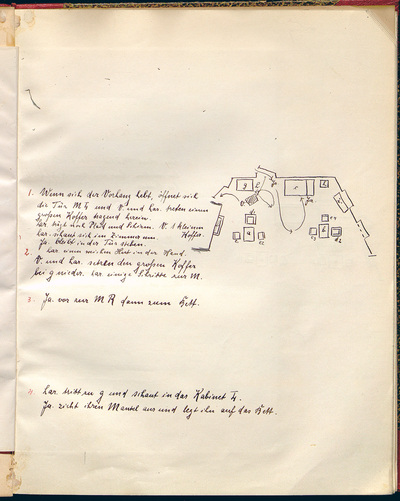 1. Wenn sich der Vorhang hebt, öffnet sich
die Tür M4 und V. und Lar. treten einen
großen Koffer tragend herein.
Lar. trägt noch Plaid und Schirm. V. 1 kleinen
Lar. schaut sich im Zimmer um. Koffer.
Ja. bleibt in der Tür stehen.
2. Lar. einen weichen Hut in der Hand.
V. und Lar. setzen den großen Koffer
bei g nieder. Lar. einige Schritte zur M.
3. Ja. vor zur M R dann zum Bett.
4. Lar. tritt zu g und schaut in das Kabinet 4.
Ja. zieht ihren Mantel aus und legt ihn auf das Bett.